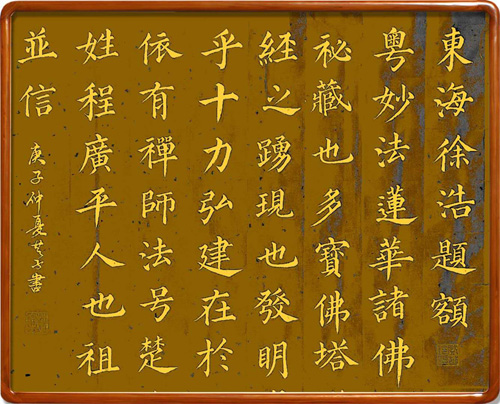 東海徐浩題額
粵妙法蓮華諸佛
祕藏也多寶佛塔
經之踴現也發明
乎十力弘建在於
依有禪師法号楚
姓程廣平人也祖
並信
庚子仲夏書